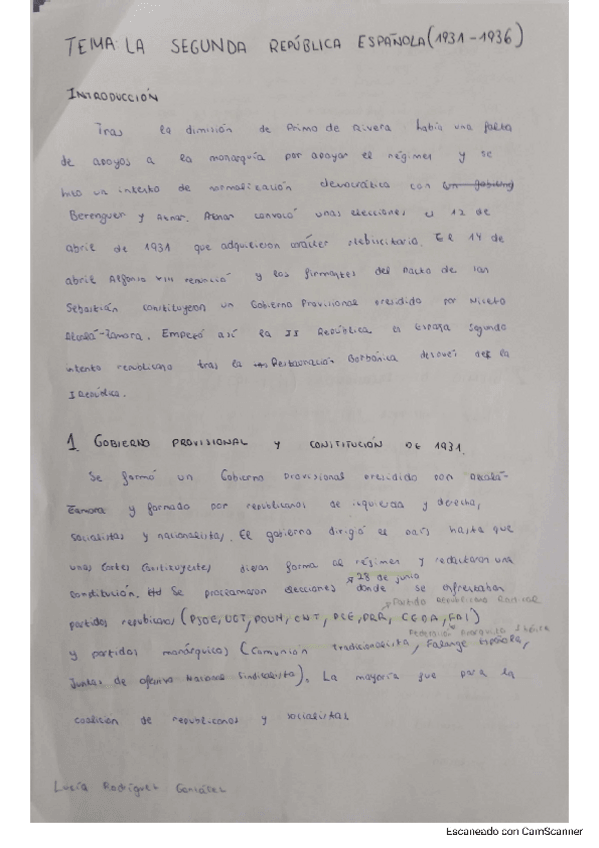 TEMA: LA SEGUNDA REPÚBLICA ESPAÑOLA (1931-1936)
INTRODUCCIÓN
Tras la dimisión de Primo de Rivera había una falta
de apoyos a la monarquía por apoyar el régimen y se
hizo un intento de normalización democrática con un gobierno
Berenguer y Aznar. Aznar convocó unas elecciones el 12 de
abril de 1931 que adquirieron carácter plebiscitario. El 14 de
abril Alfonso XIII renunció y los firmantes del Pacto de San
Sebastián constituyeron un Gobierno Provisional presidido por Niceto
Alcalá-Zamora. Empezó así la II República en España segundo
intento republicano tras la Restauración Borbónica después de la
I República.
1 GOBIERNO PROVISIONAL Y CONSTITUCIÓN DE 1931.
Se formó un Gobierno Provisional presidido por Alcalá-
Zamora y formado por republicanos de izquierda y derecha,
socialistas y nacionalistas. El gobierno dirigió el país hasta que
unas Cortes Constituyentes dieran forma al régimen y redactaron una
constitución. Se proclamaron elecciones donde se enfrentaban
28 de junio
Partido Republicano Radical
partidos republicanos (PSOE, UGT, POUM, CNT, PCE, PRR, CEDA, FAI)
Federación Anarquista Ibérica
y partidos monárquicos (Comunión tradicionalista, Falange Española,
Juntas de ofensiva Nacional Sindicalista). La mayoría fue para la
coalición de republicanos y socialistas
Lucía Rodríguez González
Escaneado con CamScanner